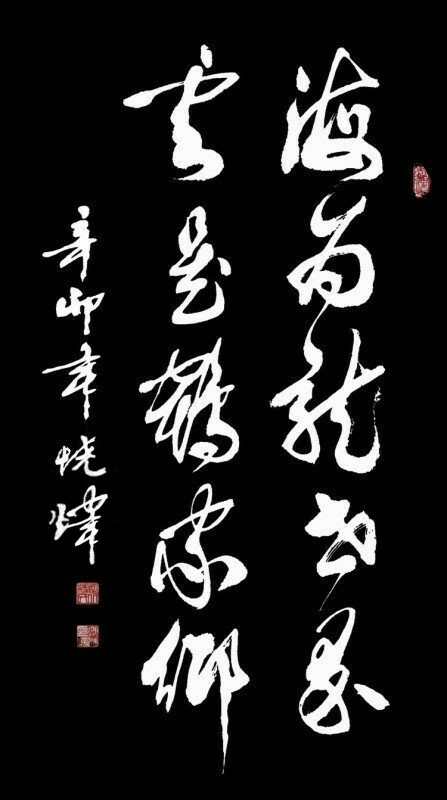 海为龙世界
云是鹤家乡
辛卯年晓炜